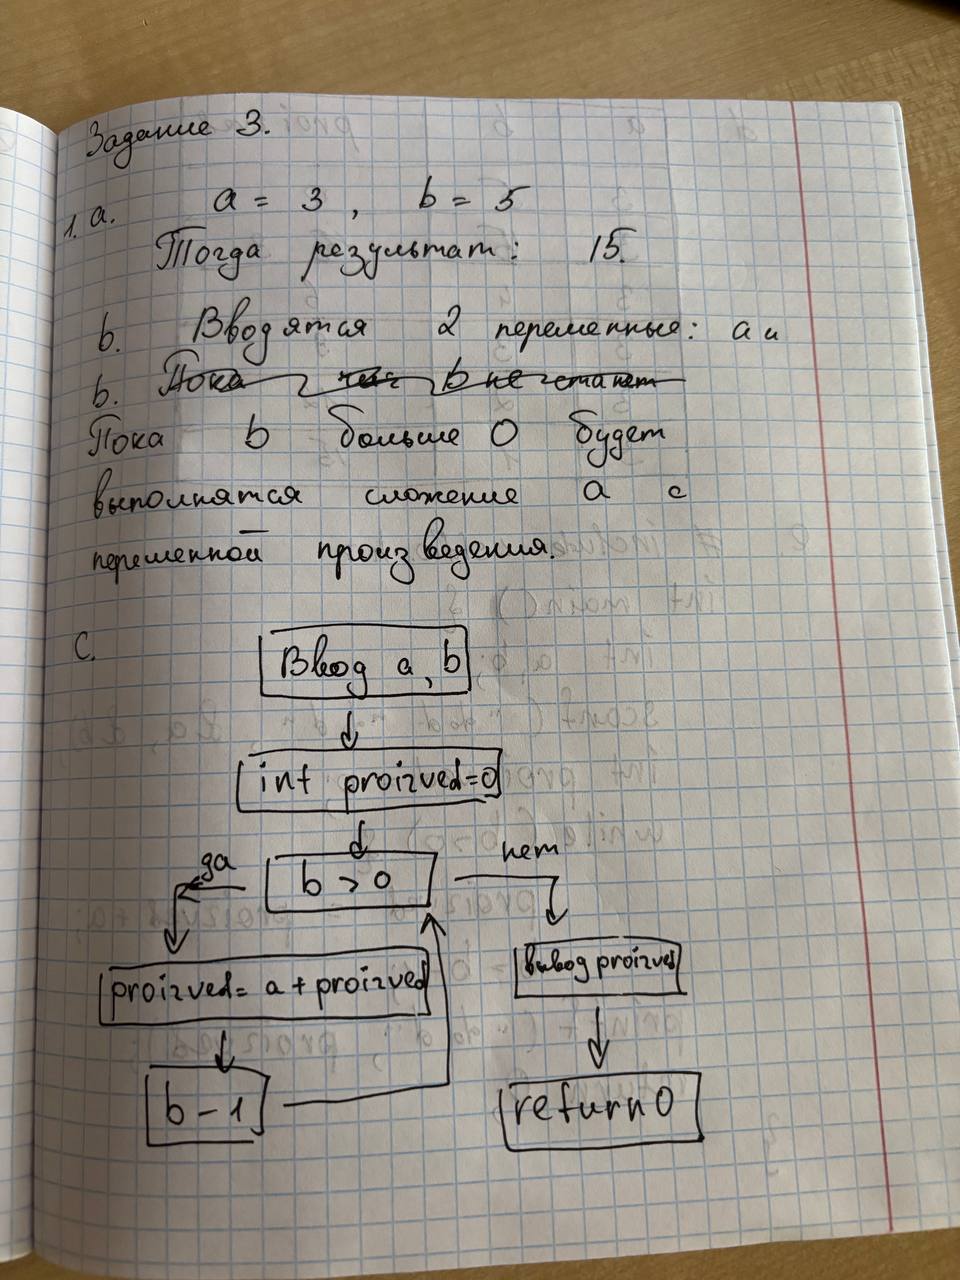 Задание 3.
1. a. a = 3, b = 5
Тогда результат: 15.
b. Вводятся 2 переменные: a и
b. Пока b не станет
Пока b больше 0 будет
выполнятся сложение a с
переменной произведения.
c.
Ввод a, b
int proizved=0
да b > 0 нет
proizved= a + proizved
вывод proizved
b - 1
return 0